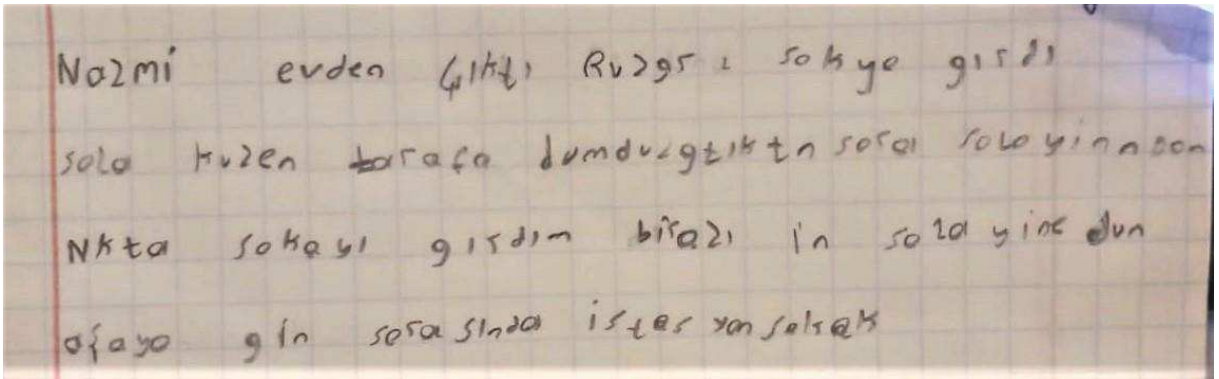 Nazmi evden Çıktı Ruzgr ı sokye girdi
sola kuzen tarafa dumduzgtıktn sora solo yinn son
Nkta sokayı girdım birazı in sola yine dun
ofayo gin sorasında istasyon sokak